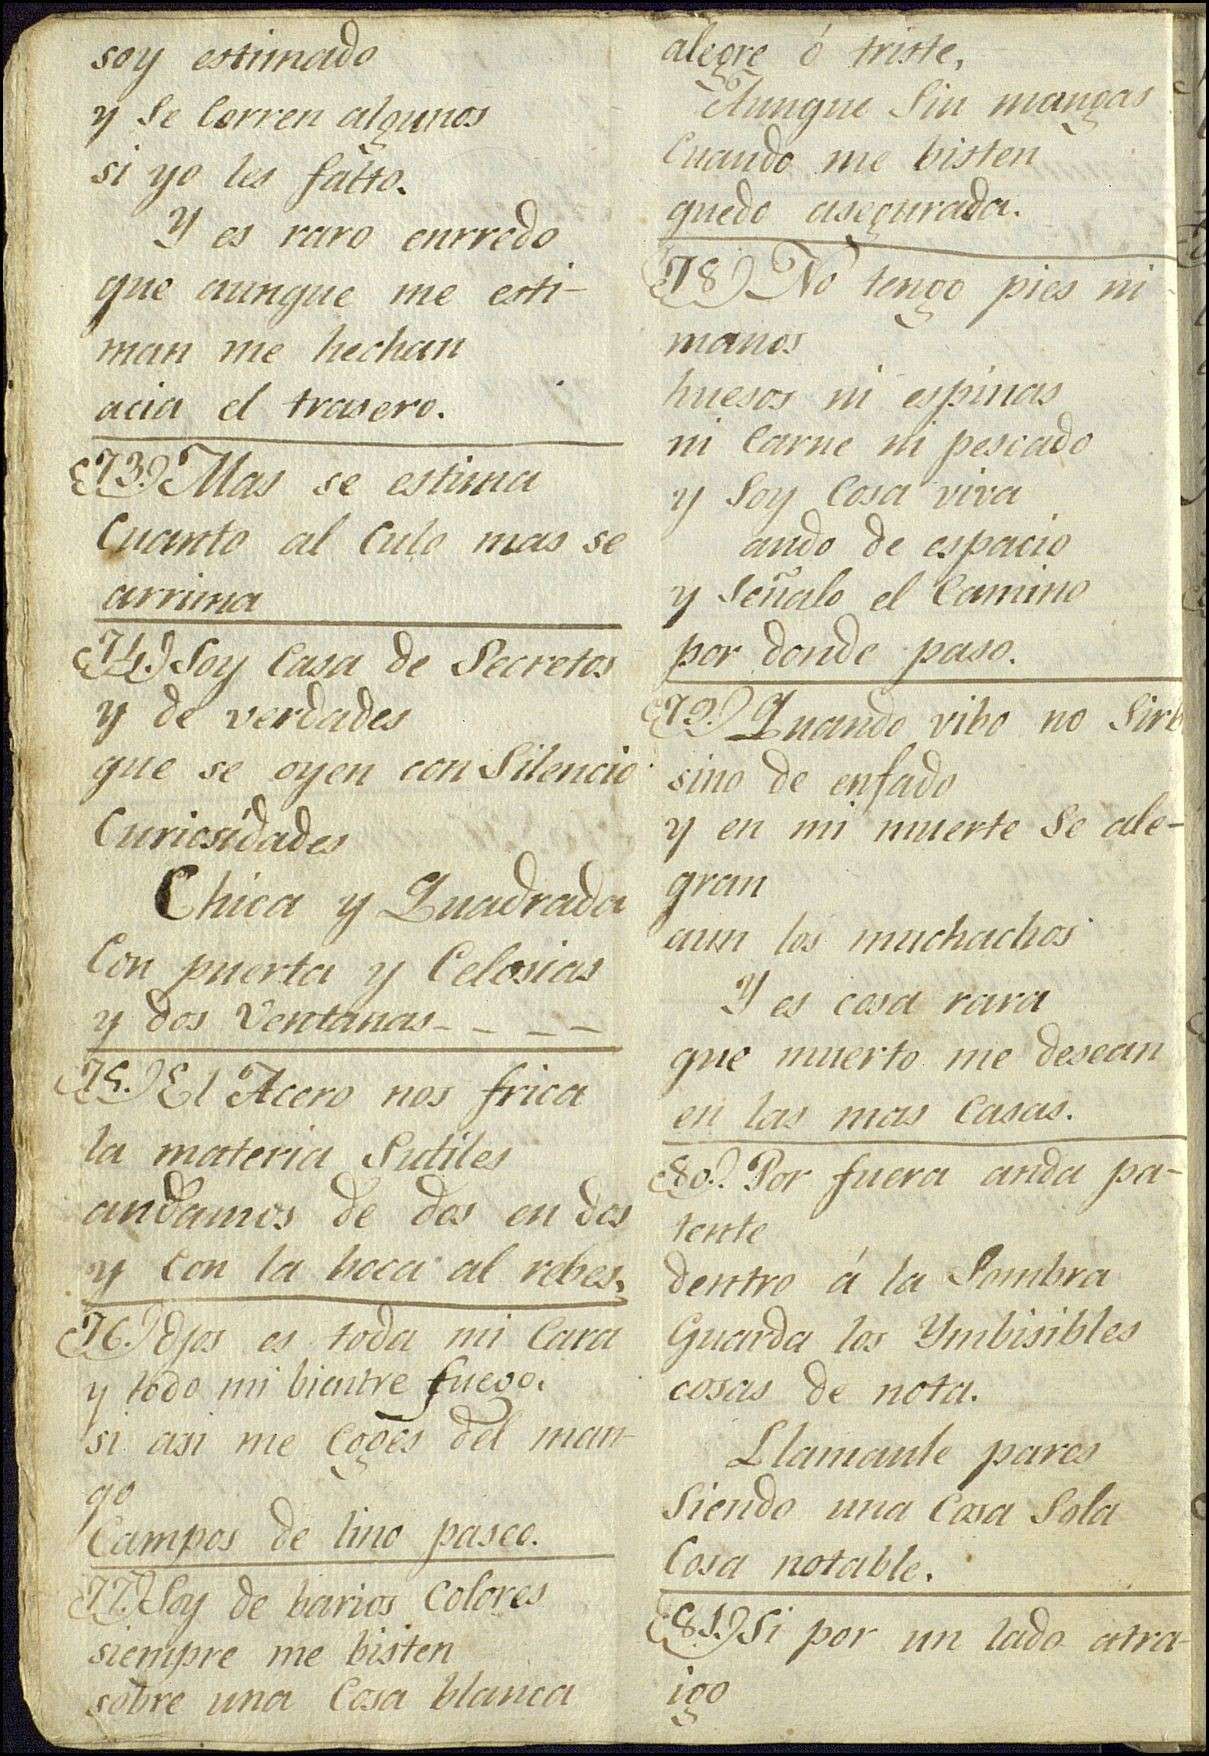 soy estimado
y se Corren algunos
si yo les falto.
Y es raro enrredo
que aunque me esti-
man me hechan
acia el trasero.
73.) Mas se estima
Cuanto al Culo mas se
arrima
74.) Soy Casa de Secretos
y de verdades
que se oyen con Silencio
Curiosidades
Chica y Quadrada
Con puerta y Celosias
y dos Ventanas - - - -
75.) El Acero nos frica
la materia Sutiles
andamos de dos en dos
y con la boca al rebes.
76.) Ojos es toda mi Cara
y todo mi bientre fuego.
si asi me Coges del man-
go
Campos de lino paseo.
77.) Soy de barios Colores
siempre me bisten
sobre una Cosa blanca
alegre ó triste,
Aunque Sin mangas
Cuando me bisten
quedo asegurada.
78.) No tengo pies ni
manos
huesos ni espinas
ni Carne ni pescado
y Soy Cosa viva
ando de espacio
y Señalo el Camino
por donde paso.
79.) Quando vibo no Sirb
sino de enfado
y en mi muerte Se ale-
gran
aun los muchachos
Y es cosa rara
que muerto me desean
en las mas Casas.
80.) Por fuera anda pa-
tente
dentro á la Sombra
Guarda los Ymbisibles
cosas de nota.
Llamanle pares
Siendo una Cosa Sola
Cosa notable.
81.) Si por un lado atra-
igo